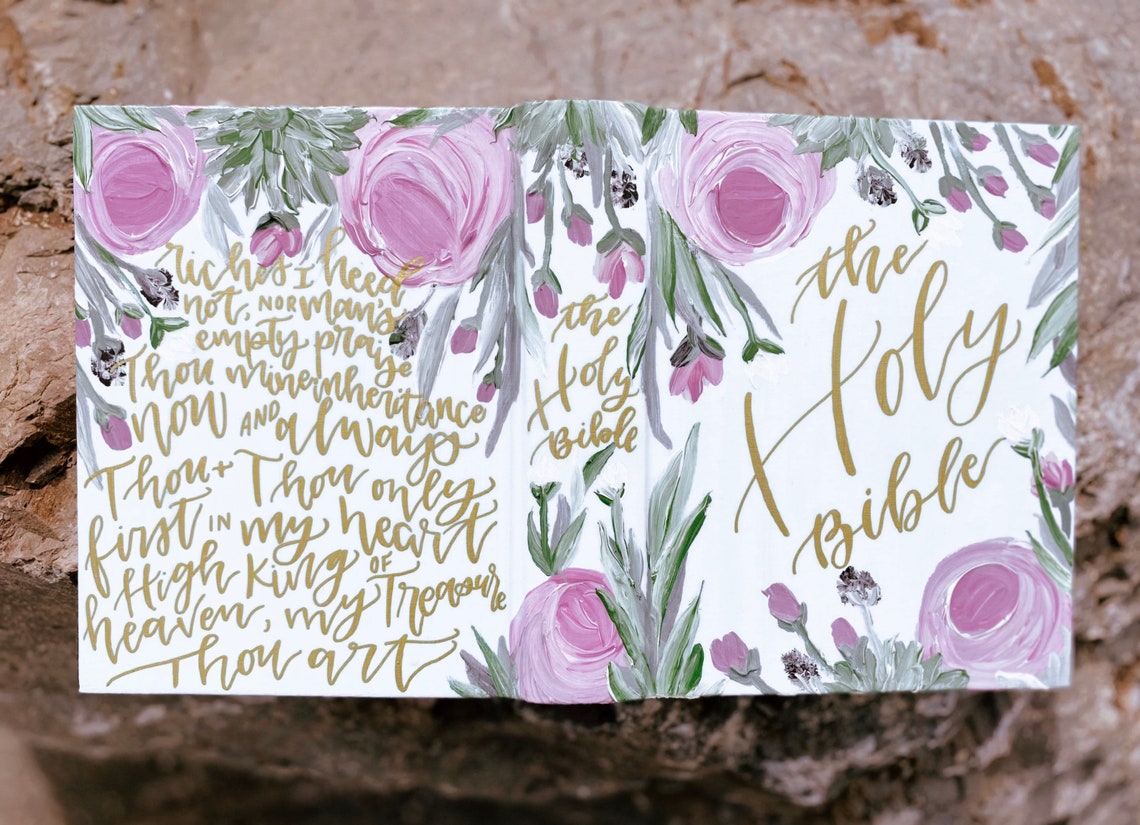 riches I heed
not, NOR man's
empty praise
Thou mine inheritance
now AND always
Thou + Thou only
first IN my heart
High King OF
heaven, my Treasure
Thou art
the
Holy
Bible
the
Holy
Bible